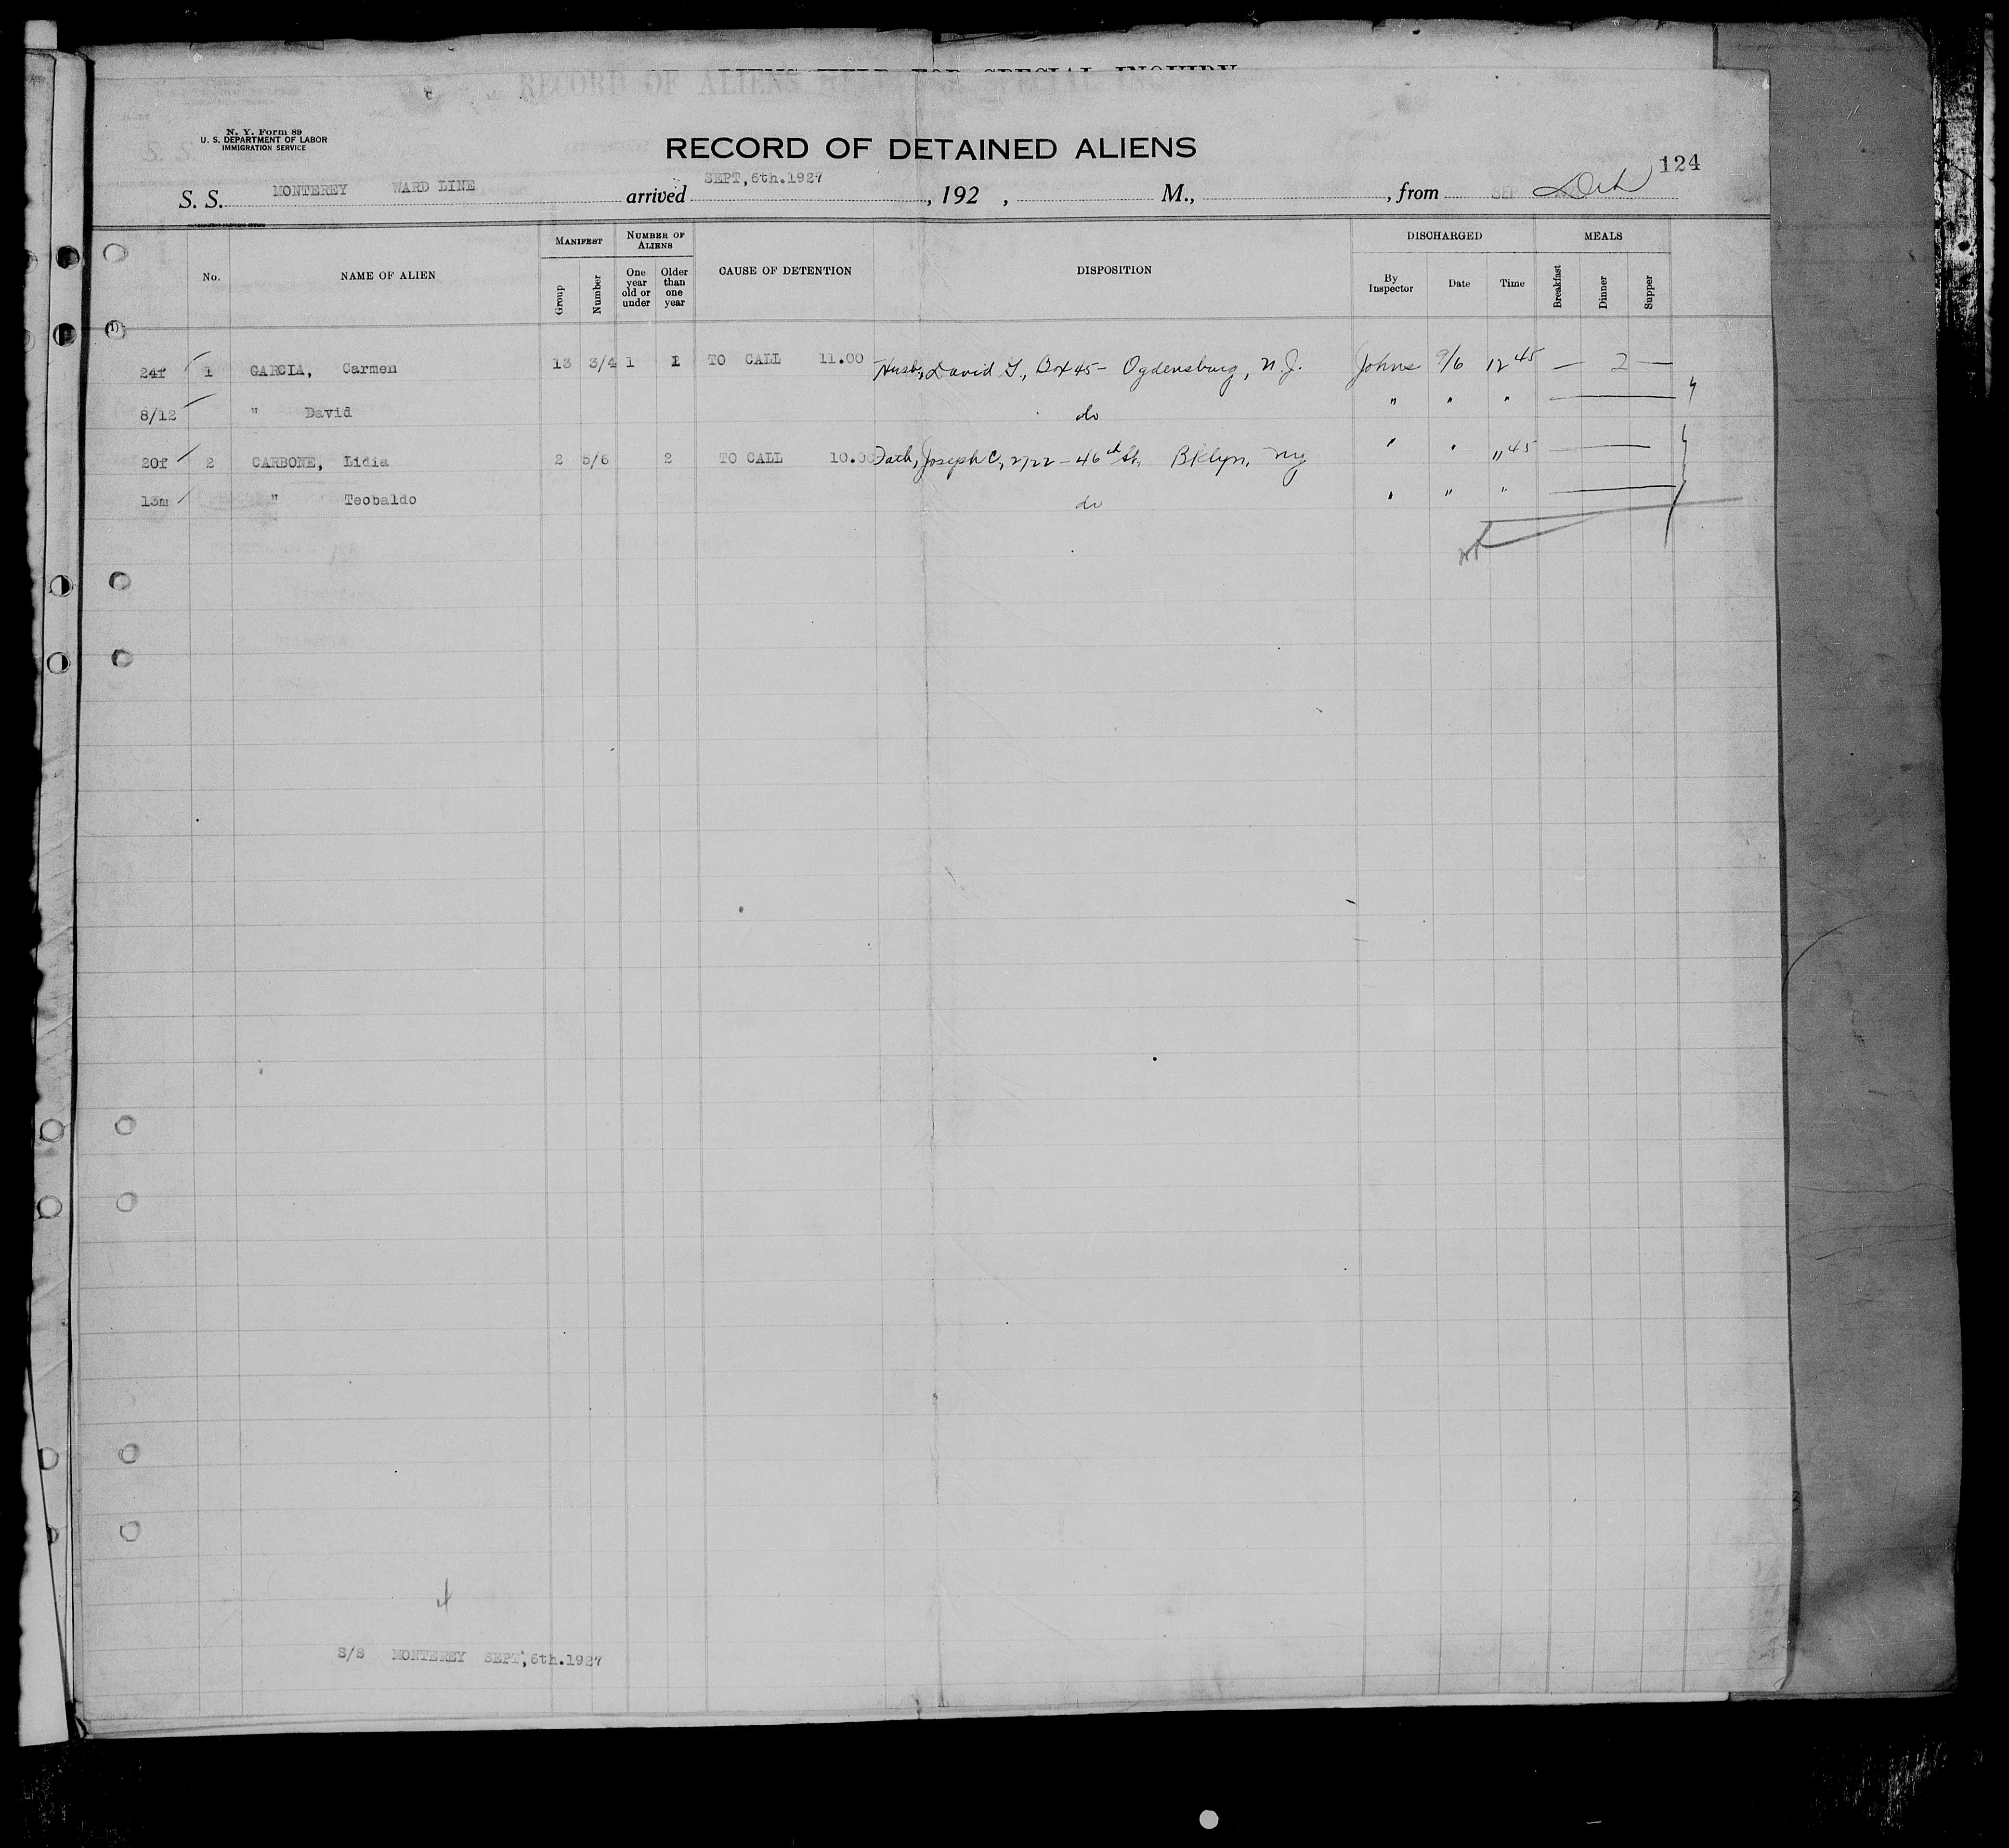 RECORD OF ALIENS HELD FOR SPECIAL INQUIRY
N. Y. Form 89
U. S. DEPARTMENT OF LABOR
IMMIGRATION SERVICE
RECORD OF DETAINED ALIENS
124
S. S. MONTEREY WARD LINE arrived SEPT,6th.1927, 192 , M., , from SEP
MANIFEST NUMBER OF ALIENS DISCHARGED MEALS
No. NAME OF ALIEN Group Number One year old or under Older than one year CAUSE OF DETENTION DISPOSITION By Inspector Date Time Breakfast Dinner Supper
24f 1 GARCIA, Carmen 13 3/4 1 1 TO CALL 11.00 Husb, David G., Box 45 - Ogdensburg, N.J. Johns 9/6 12 45 — 2 —
8/12 " David do " " "
20f 2 CARBONE, Lidia 2 5/6 2 TO CALL 10.00 Fath, Joseph C, 2722 - 46th St. Bklyn. NY " " " 45
13m " Teobaldo do " " "
4
S/S MONTEREY SEPT,6th.1927